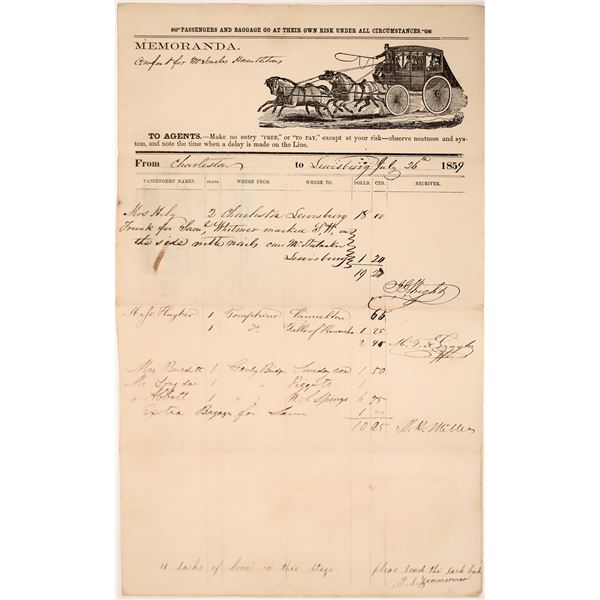 "PASSENGERS AND BAGGAGE GO AT THEIR OWN RISK UNDER ALL CIRCUMSTANCES."
MEMORANDA.
for Mr
TO AGENTS.—Make no entry "FREE," or "TO PAY," except at your risk—observe neatness and sys-
tem, and note the time when a delay is made on the Line.
From Charleston to Lewisburg July 26th 1859
PASSENGERS' NAMES. SEATS. WHERE FROM. WHERE TO. DOLLS. CTS. RECEIVER.
Mrs 2 Charleston Lewisburg 18 00
Trunk for Saml Whitmer marked S. W. on
the side with nails care Mr
Lewisburg 1 20
19 20
Wright
Hughes 1 Tompkins 
1 Do Falls of Kanawha 1 25
2
Mrs Burdett 1 Gauly Bridge 1 50
Mr 1 " " 1
Abbott 1 " " W. S. Springs 6 75
Extra Baggage for Same 1
10 25 Miller
11 sacks of corn in this stage please send the sack back
Zimmerman